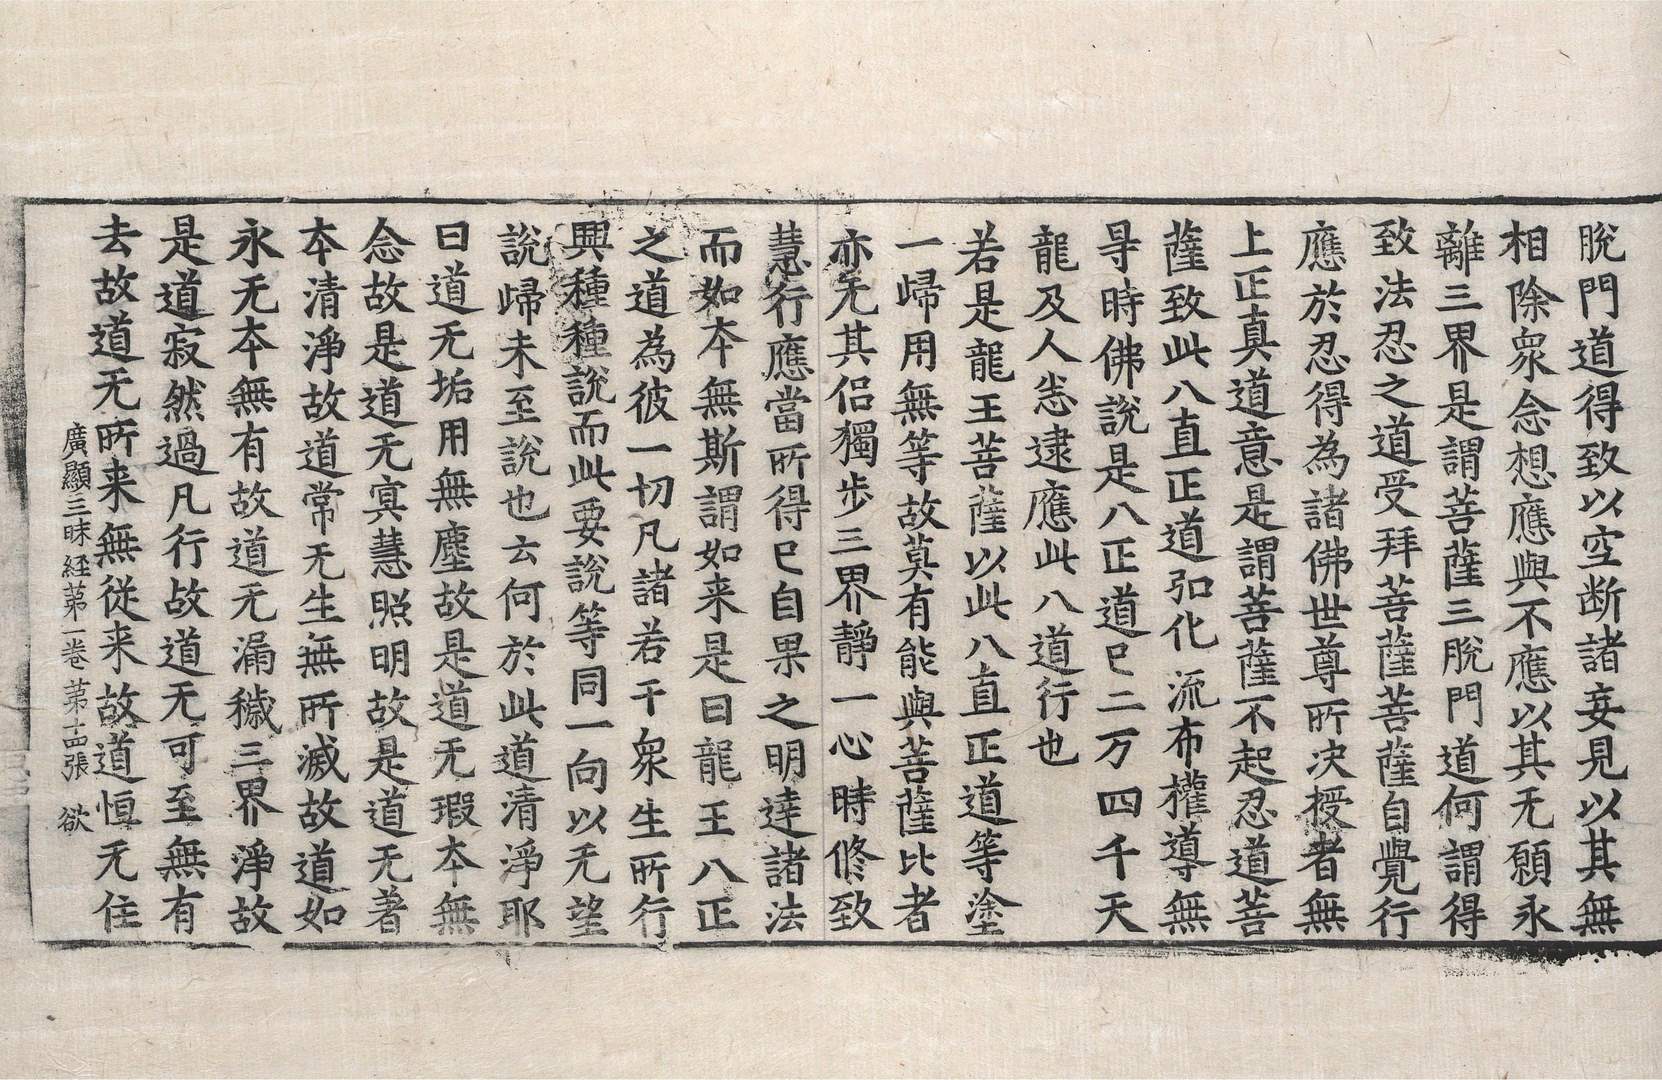 脫門道得致以空断諸妄見以其無
相除衆念想應與不應以其无願永
離三界是謂菩薩三脫門道何謂得
致法忍之道受拜菩薩菩薩自覺行
應於忍得為諸佛世尊所决授者無
上正真道意是謂菩薩不起忍道菩
薩致此八直正道弘化流布權導無
㝵時佛說是八正道已二万四千天
龍及人悉逮應此八道行也
若是龍王菩薩以此八直正道等塗
一歸用無等故莫有能與菩薩比者
亦无其侣獨步三界靜一心時修致
慧行應當所得已自果之明達諸法
而如本無斯謂如来是曰龍王八正
之道為彼一切凡諸若干衆生所行
興種種說而此要說等同一向以无望
說歸未至說也云何於此道清淨耶
曰道无垢用無塵故是道无瑕本無
念故是道无㝠慧照明故是道无著
本清淨故道常无生無所滅故道如
永无本無有故道无漏穢三界淨故
是道寂然過凡行故道无可至無有
去故道无所来無從来故道恒无住
廣顯三昧経苐一卷 苐十四張 欲